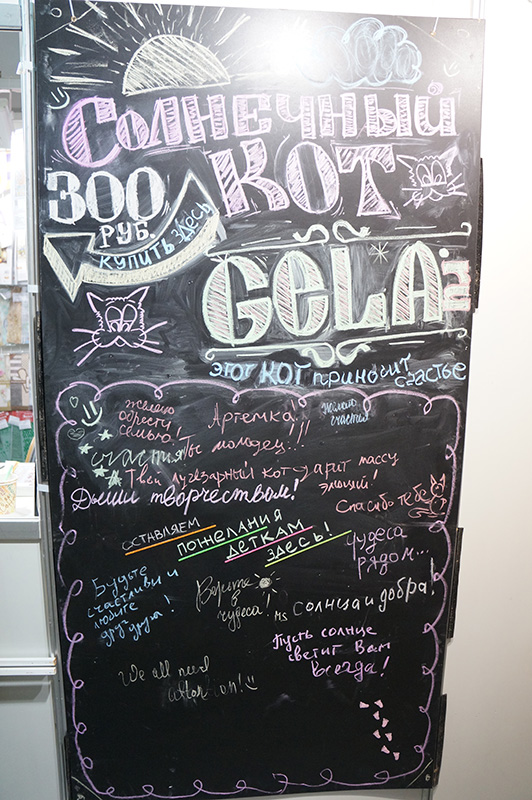 Солнечный
300
РУБ.
купить здесь
КОТ
GELA
этот кот приносит счастье
желаю
обрести
семью!
Артемка!
Желаю
счастья
счастья
Ты молодец!!!
Твой лучезарный кот дарит массу
эмоций!
Дыши творчеством!
Спасибо тебе
оставляем
пожелания
деткам
здесь!
чудеса
рядом...
Будьте
счастливы и
любите
друг друга!
Верьте
в
чудеса!
Солнца и добра!
Пусть солнце
светит Вам
всегда!
We all need
attention!